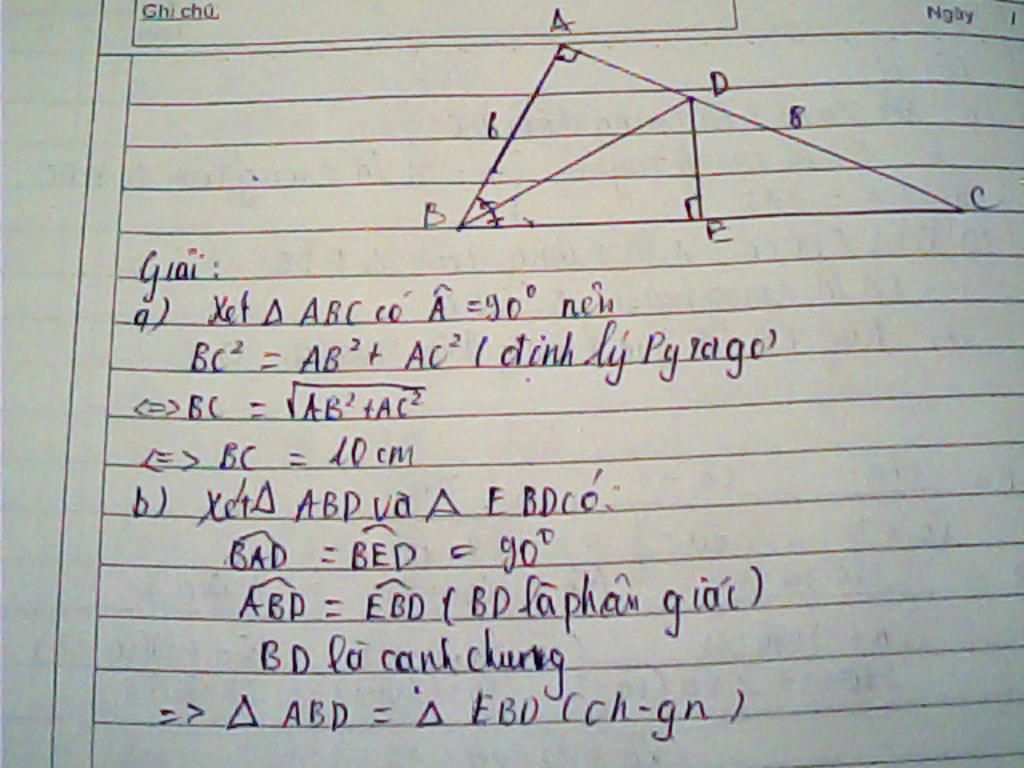 Ghi chú
Ngày 1
A
D
6
8
B
E
C
Giải:
a) Xét Δ ABC có Â = 90° nên
BC² = AB² + AC² (định lý Pytago)
<=> BC = √AB² + AC²
<=> BC = 10 cm
b) Xét Δ ABD và Δ EBD có:
BAD = BED = 90°
ABD = EBD (BD là phân giác)
BD là cạnh chung
=> Δ ABD = Δ EBD (ch-gn)